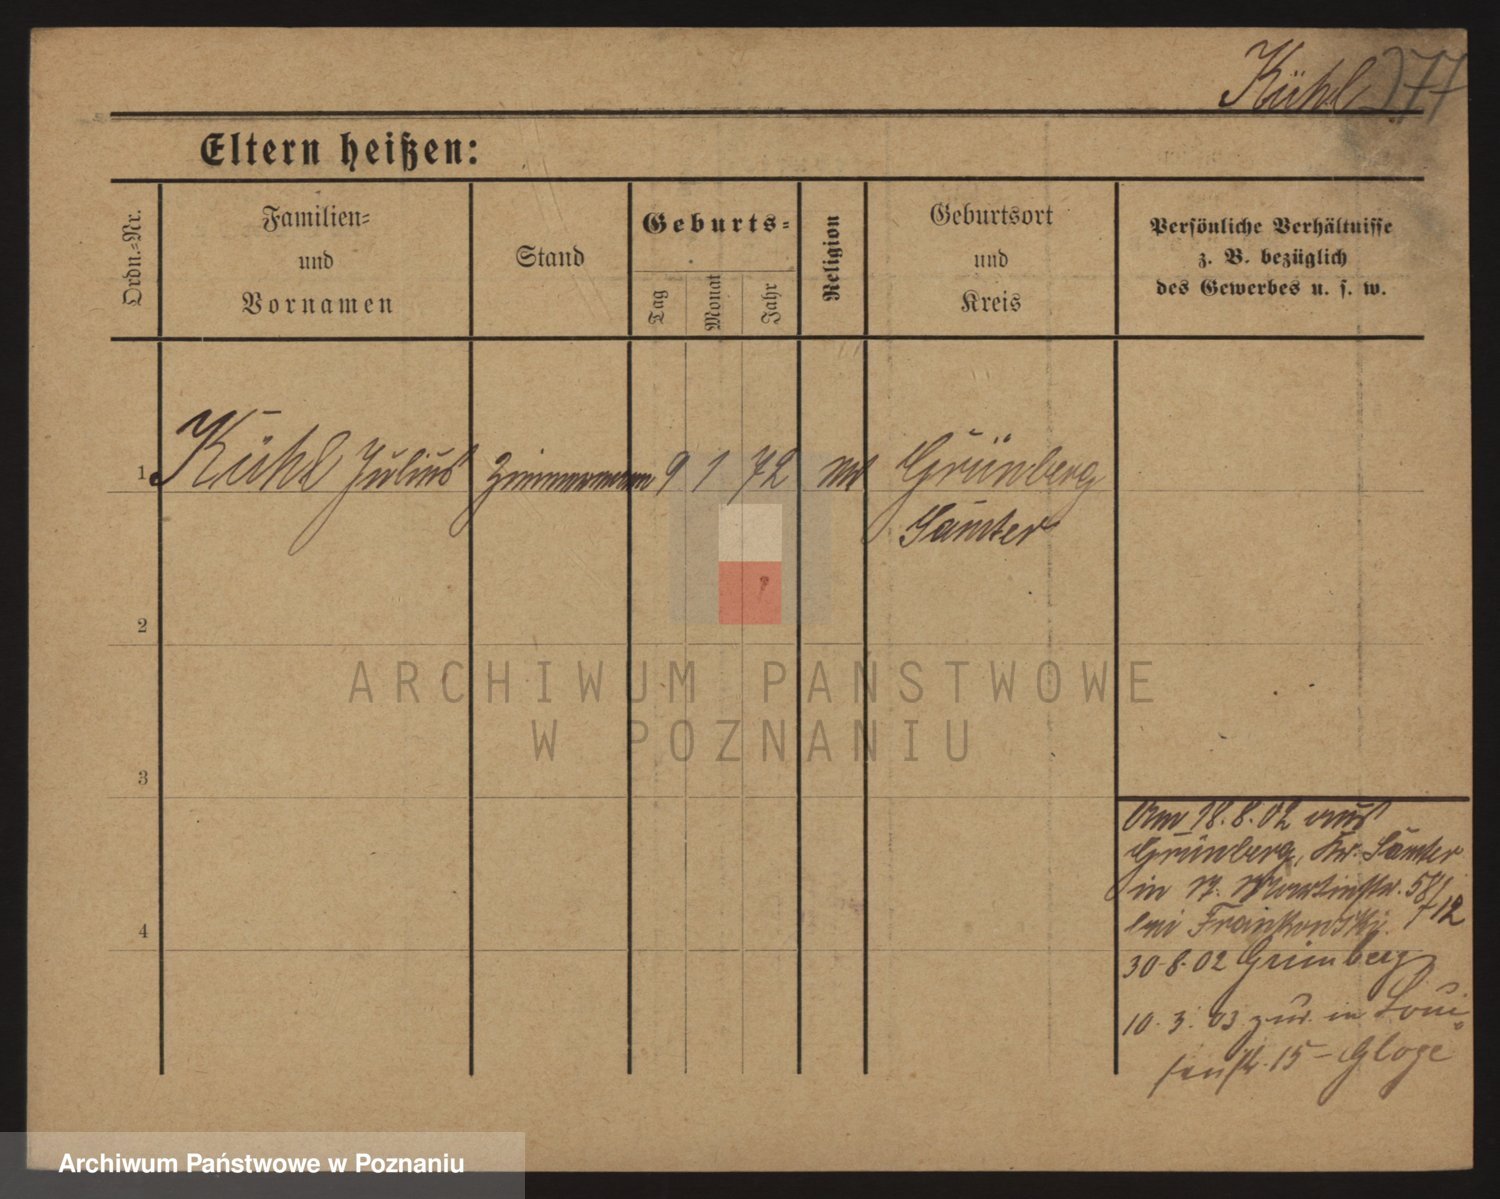 Kühl 277
Eltern heißen:
Ordn.-Nr.
Familien-
und
Vornamen
Stand
Geburts-
Tag
Monat
Jahr
Religion
Geburtsort
und
Kreis
Persönliche Verhältnisse
z. B. bezüglich
des Gewerbes u. s. w.
1 Kühl Julius Zimmermann 9 1 72 Grünberg
Samter
2
3
4
Am 18.8.02 aus
Grünberg, Kr. Samter
in St. Martinstr. 58/
bei Frankowski. 12
30.8.02 Grünberg
10.3.03 zur. in Loui-
senstr. 15 - Gloge
ARCHIWUM PAŃSTWOWE
W POZNANIU
Archiwum Państwowe w Poznaniu